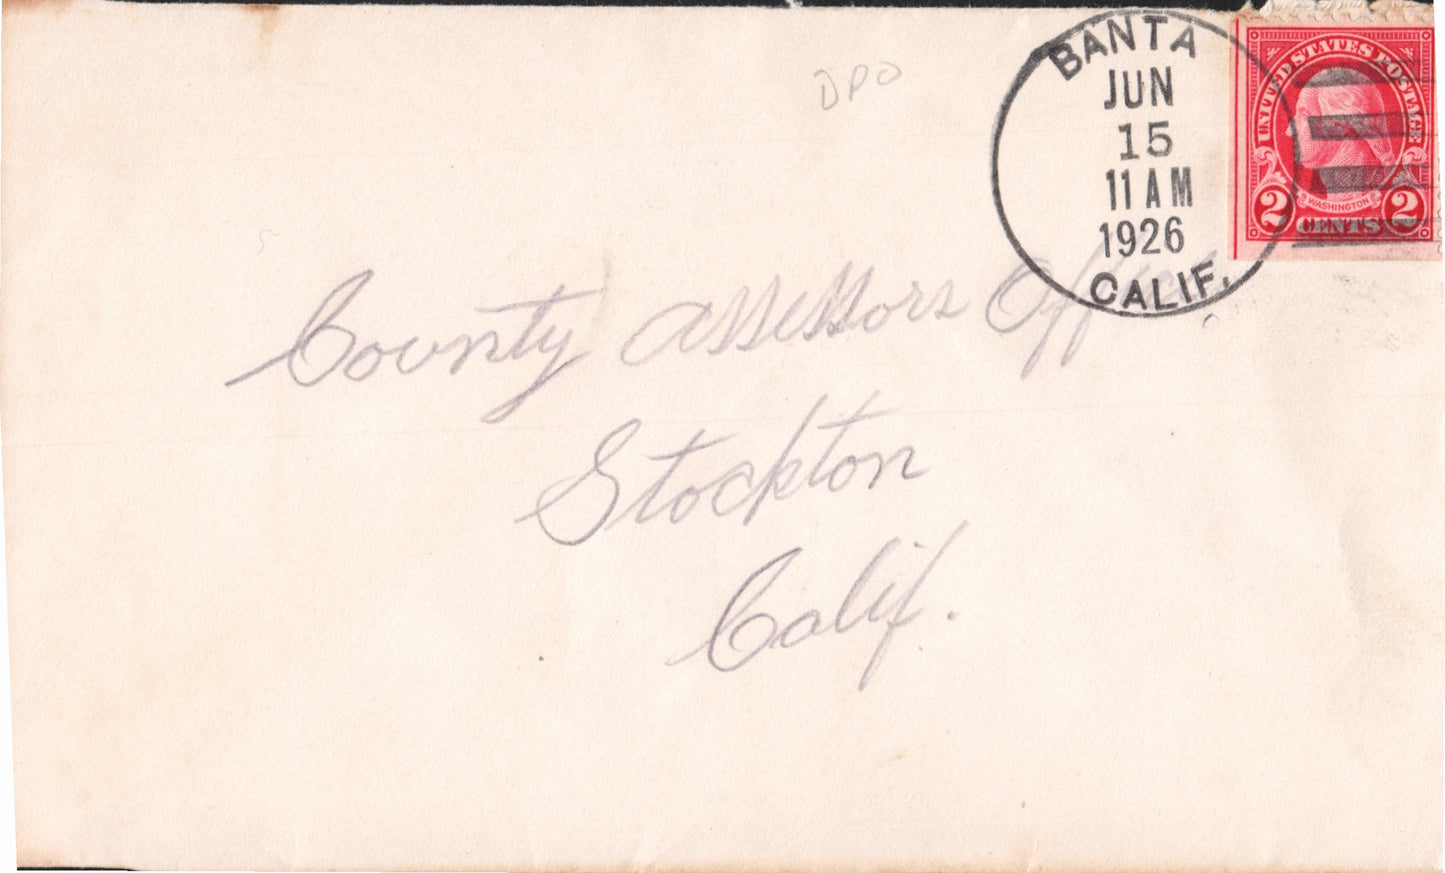 DPO
BANTA
JUN
15
11 AM
1926
CALIF.
UNITED STATES POSTAGE
WASHINGTON
2 CENTS 2
County Assessors Office
Stockton
Calif.